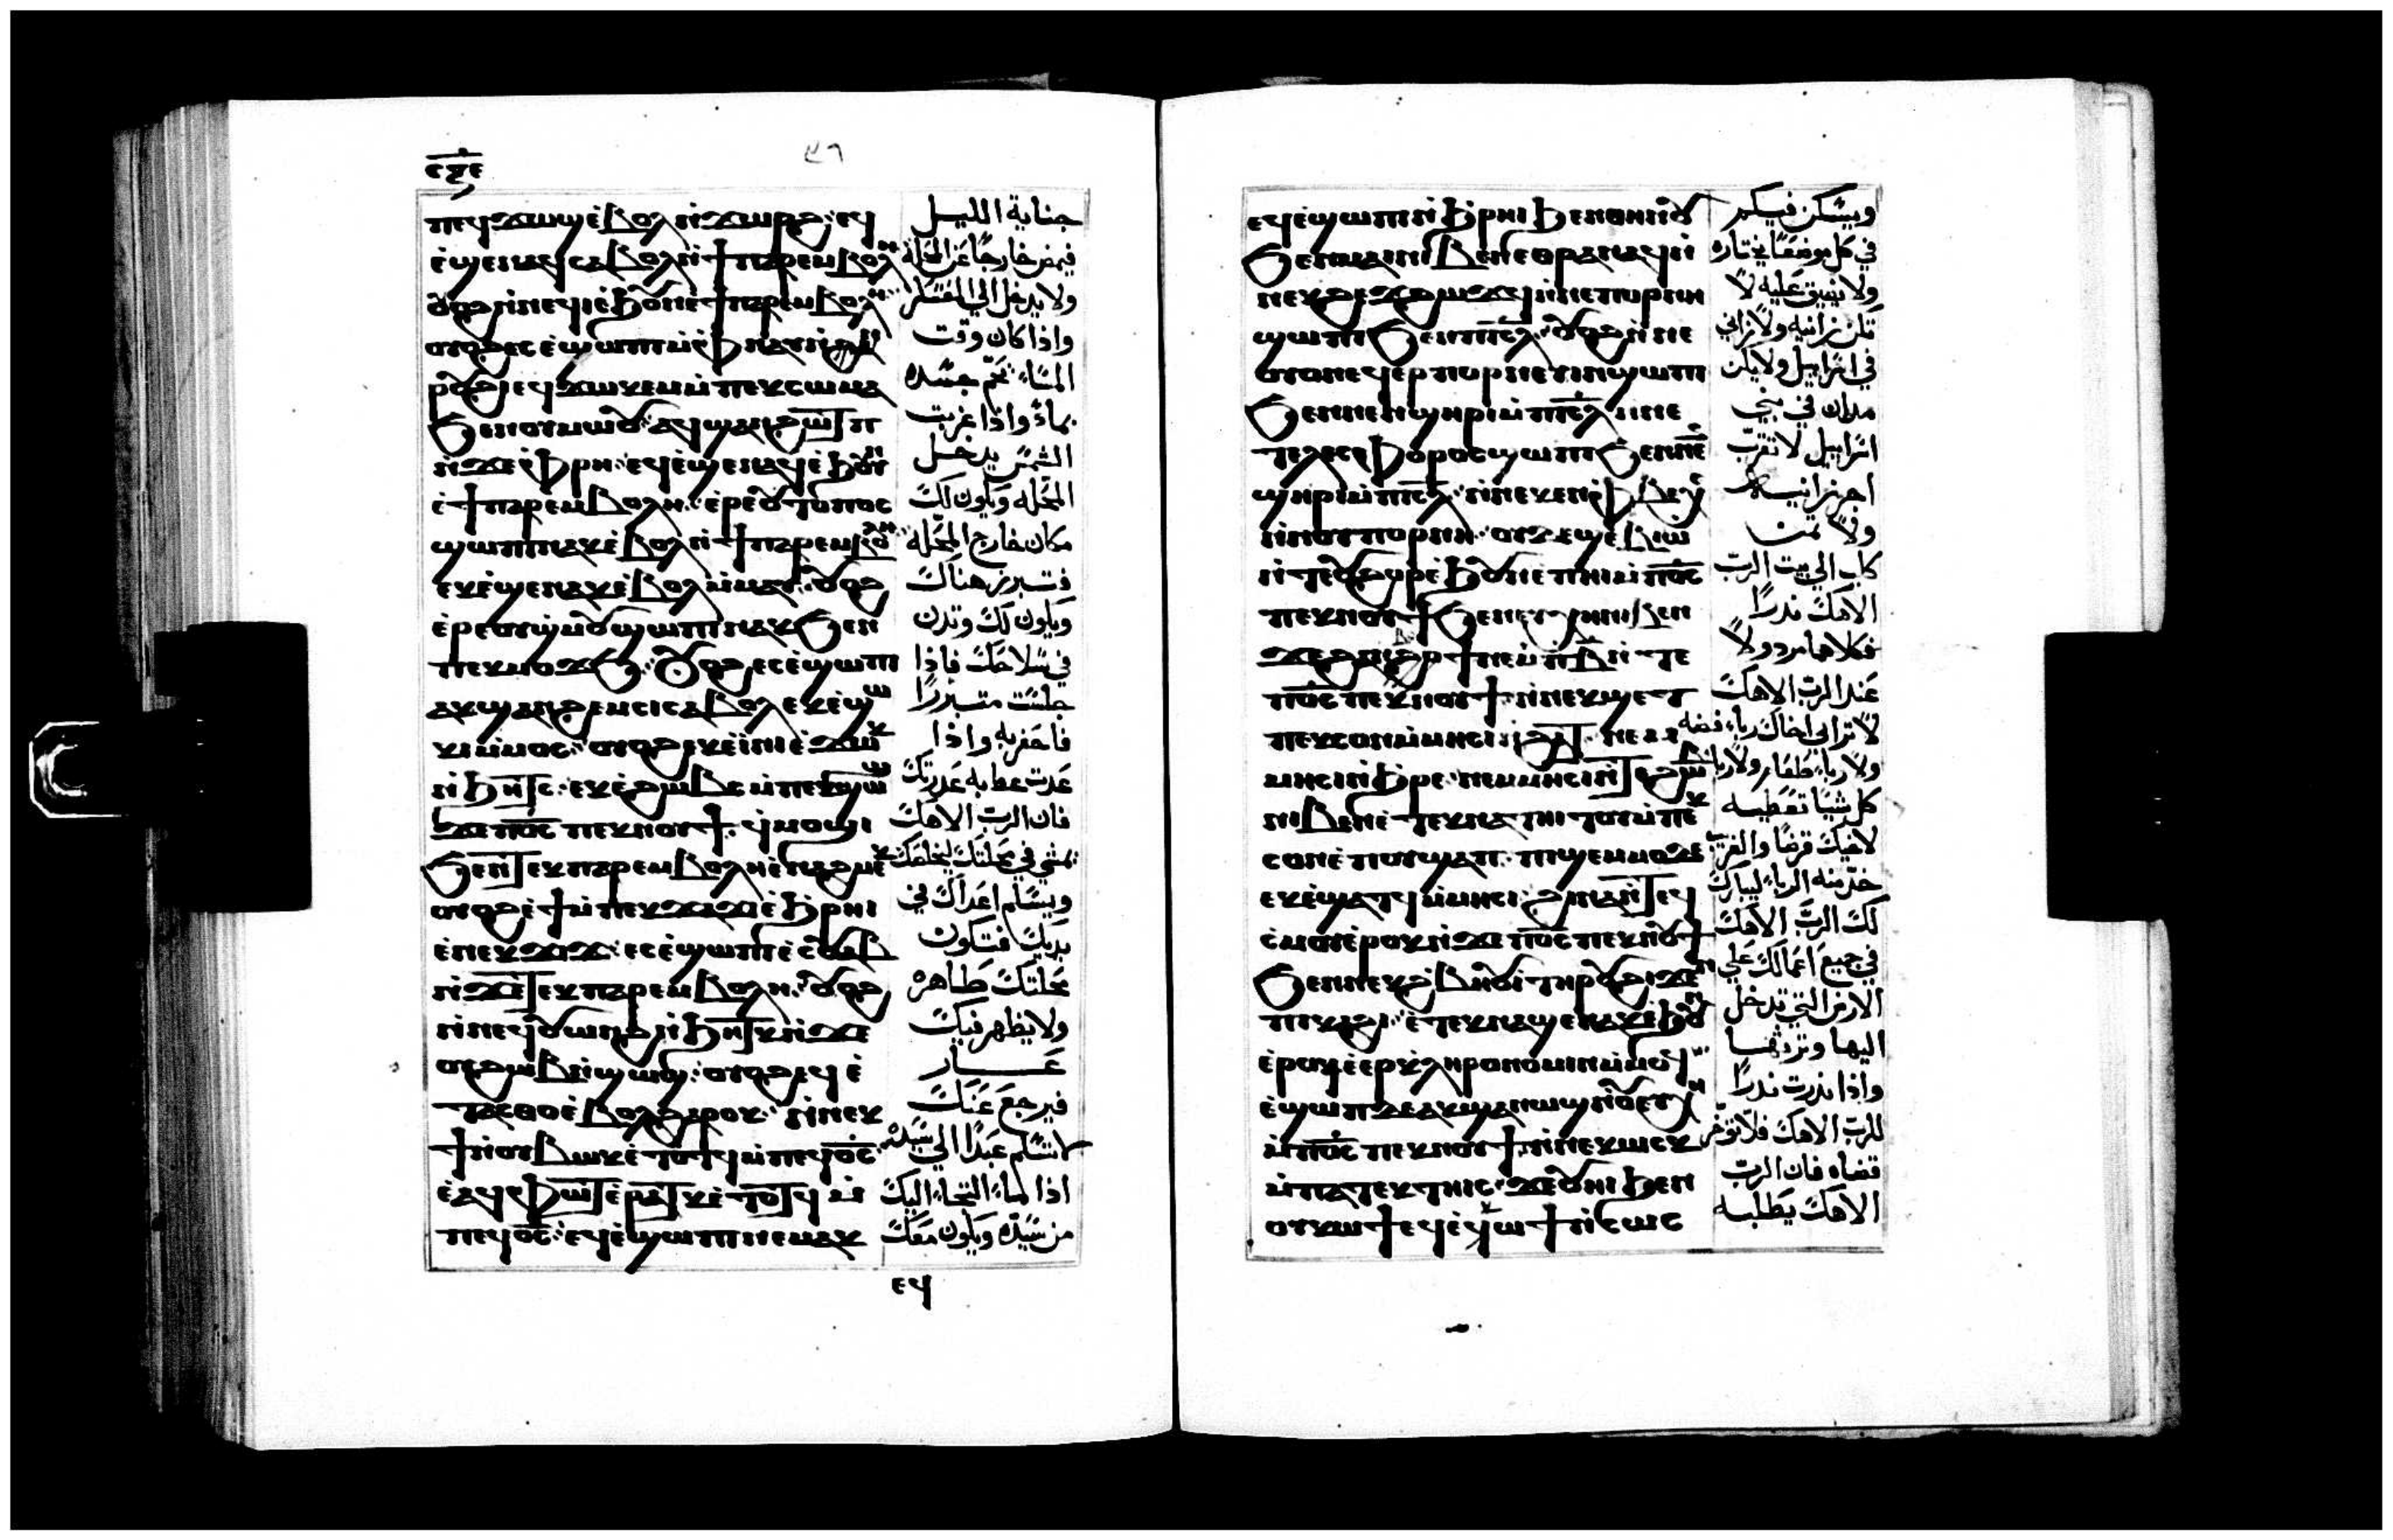 ⲡⲉϥϫⲱϣ ⲉ̀ⲃⲟⲗ ⲛ̀ϫⲱⲣϩ: ⲉϥ
ⲉ̀ϣⲉⲛⲁϥ ⲥⲁⲃⲟⲗ ⲛ̀ϯⲡⲁⲣⲉⲙⲃⲟⲗⲏ
ⲟⲩⲟϩ ⲛ̀ⲛⲉϥⲓ ⲉ̀ϧⲟⲩⲛ ⲉ̀ϯⲡⲁⲣⲉⲙⲃⲟⲗⲏ
ⲟⲩⲟϩ ⲉⲥⲉ̀ϣⲱⲡⲓ ⲙ̀ⲫⲛⲁⲩ ⲛ̀ϩⲁⲛⲁ
ⲣⲟⲩϩⲓ ⲉϥϫⲱⲕⲉⲙ ⲙ̀ⲡⲉϥⲥⲱⲙⲁ
ϧⲉⲛ ⲟⲩⲙⲱⲟⲩ: ⲁϥϣⲁⲛϩⲱⲧⲡ
ⲛ̀ϫⲉ ⲫⲣⲏ: ⲉϥⲉ̀ϣⲉⲛⲁϥ ⲉ̀ϧⲟⲩⲛ
ⲉ̀ϯⲡⲁⲣⲉⲙⲃⲟⲗⲏ: ⲉ̀ⲣⲉ ⲟⲩⲧⲟⲡⲟⲥ
ϣⲱⲡⲓ ⲛⲁⲕ ⲉ̀ⲃⲟⲗ ⲛ̀ϯⲡⲁⲣⲉⲙⲃⲟⲗⲏ
ⲉⲕⲉ̀ϣⲉⲛⲁⲕ ⲉ̀ⲃⲟⲗ ⲙ̀ⲙⲁⲩ: ⲟⲩⲟϩ
ⲉ̀ⲣⲉ ⲟⲩϣ̀ⲙⲟⲩ ϣⲱⲡⲓ ⲛⲁⲕ ϧⲉⲛ
ⲡⲉⲕⲙⲟϫϧ: ⲟⲩⲟϩ ⲉⲥⲉ̀ϣⲱⲡⲓ
ⲁⲕϣⲁⲛϩⲉⲙⲥⲓ ⲥⲁⲃⲟⲗ ⲉⲕⲉ̀ϣⲱ
ⲕⲓ ⲙ̀ⲙⲟⲥ: ⲟⲩⲟϩ ⲉⲕⲉ̀ⲓⲛⲓ ⲉ̀ϫⲱⲕ
ⲛ̀ϧⲏⲧⲥ: ⲉⲕⲉ̀ϩⲱⲃⲥ ⲙ̀ⲡⲉⲕϣⲱ
ϫⲉ ⲡ̅ⲟ̅ⲥ̅ ⲡⲉⲕⲛⲟⲩϯ: ϥⲙⲟϣⲓ
ϧⲉⲛ ⲧⲉⲕⲡⲁⲣⲉⲙⲃⲟⲗⲏ ⲉ̀ⲛⲁϩⲙⲉⲕ
ⲟⲩⲟϩ ⲉ̀ϯ ⲙ̀ⲡⲉⲕϫⲁϫⲓ ⲉ̀ϧⲣⲏⲓ
ⲉ̀ⲛⲉⲕϫⲓϫ: ⲉⲥⲉ̀ϣⲱⲡⲓ ⲉⲥⲟⲩⲁⲃ
ⲛ̀ϫⲉ ⲧⲉⲕⲡⲁⲣⲉⲙⲃⲟⲗⲏ: ⲟⲩⲟϩ
ⲛ̀ⲛⲉϥⲟⲩⲱⲛϩ ⲛ̀ϧⲏⲧⲕ ⲛ̀ϫⲉ
ⲟⲩϩⲱⲃ ⲛ̀ϣⲱϣ: ⲟⲩⲟϩ ⲉϥⲉ̀
ⲧⲁⲥⲑⲟ ⲉ̀ⲃⲟⲗ ϩⲁⲣⲟⲕ: ⲛ̀ⲛⲉⲕ
ϯ ⲛ̀ⲟⲩⲃⲱⲕ ⲉ̀ⲧⲟⲧϥ ⲙ̀ⲡⲉϥⲟ̅ⲥ̅
ⲉ̀ⲁϥⲫⲱⲧ ⲉ̀ⲣⲁⲧⲕ ⲉ̀ⲧⲟⲧϥ ⲙ̀
ⲡⲉϥⲟ̅ⲥ̅: ⲉϥⲉ̀ϣⲱⲡⲓ ⲛⲉⲙⲁⲕ
ⲉϥ
جنابة الليل
فيمض خارجًا عن المحلة
ولا يدخل الي المعسكر
واذا كان وقت
المساء يحم جسده
بماء واذا غربت
الشمس يدخل
المحله ويكون لك
مكان خارج المحله
فتبرز هناك
ويكون لك وتد
في سلاحك فاذا
جلست متبرزًا
فاحفر به واذا
عدت غطا به عذرتك
فان الرب الاهك
يمشي في محلتك ليخلصك
ويسلم اعداك في
يديك فتكون
محلتك طاهره
ولا يظهر فيك
عــار
فيرجع عنك
لا تسلم عبدًا الي سيده
اذا التجا اليك
من سيده ويكون معك
ⲉϥⲉ̀ϣⲱⲡⲓ ⲛ̀ϧⲣⲏⲓ ϧⲉⲛ ⲑⲏⲛⲟⲩ
ϧⲉⲛ ⲙⲁⲓ ⲛⲓⲃⲉⲛ ⲉⲑⲣⲁⲛⲁϥ ⲛ̀
ⲛⲉⲕϩⲉϫϩⲱϫϥ ⲛ̀ⲛⲉ ⲡⲟⲣⲛⲏ
ϣⲱⲡⲓ ϧⲉⲛ ⲡⲓ̅ⲥ̅ⲗ̅: ⲟⲩⲟϩ ⲛ̀ⲛⲉ
ⲟⲩⲟⲛ ⲉϥⲉⲣⲡⲟⲣⲛⲉⲩⲓⲛ ϣⲱⲡⲓ
ϧⲉⲛ ⲛⲉⲛϣⲏⲣⲓ ⲙ̀ⲡⲓ̅ⲥ̅ⲗ̅ ⲛ̀ⲛⲉ
ⲧⲉⲗⲉⲥⲫⲟⲣⲟⲥ ϣⲱⲡⲓ ϧⲉⲛ ⲛⲉⲛ
ϣⲏⲣⲓ ⲙ̀ⲡⲓ̅ⲥ̅ⲗ̅: ⲛ̀ⲛⲉⲕⲉⲛ ⲫⲃⲉⲭⲉ
ⲛ̀ⲛⲟⲩⲡⲟⲣⲛⲏ: ⲟⲩⲇⲉ ϣⲉⲃⲓⲱ
ⲛ̀ⲧⲉ ⲟⲩⲟⲩϩⲟⲣ ⲉ̀ϧⲟⲩⲛ ⲉ̀ⲡⲏⲓ ⲙ̀ⲡ̅ⲟ̅ⲥ̅
ⲡⲉⲕⲛⲟⲩϯ ϧⲉⲛ ⲉⲩⲭⲏ ⲛⲓⲃⲉⲛ
ⲡ̅ⲟ̅ⲥ̅ ⲡⲉⲕⲛⲟⲩϯ: ⲛ̀ⲛⲉⲕϣⲉⲧ
ⲡⲉⲕⲥⲟⲛ ⲙ̀ⲙⲏⲥⲓ ⲛ̀ϩⲁⲧ ⲛⲉⲙ
ⲙⲏⲥⲓ ⲛ̀ϧⲣⲉ: ⲛⲉⲙ ⲙⲏⲥⲓ ⲛ̀ⲧⲉ ϩⲱⲃ
ⲛⲓⲃⲉⲛ ⲉ̀ⲧⲉⲕⲛⲁⲧⲏⲓⲧⲟⲩ ⲙ̀ⲡⲉⲕ
ⲥⲟⲛ ⲉ̀ⲡⲟⲩϣⲁⲡ: ⲡⲓϣⲉⲙⲙⲟ ⲇⲉ
ⲉⲕⲉ̀ϣⲁⲧϥ ⲙ̀ⲙⲏⲥⲓ: ϩⲓⲛⲁ ⲛ̀ⲧⲉϥ
ⲥ̀ⲙⲟⲩ ⲉ̀ⲣⲟⲕ ⲛ̀ϫⲉ ⲡ̅ⲟ̅ⲥ̅ ⲡⲉⲕⲛⲟⲩϯ
ϧⲉⲛ ⲛⲉⲕϩ̀ⲃⲏⲟⲩⲓ̀ ⲧⲏⲣⲟⲩ ϩⲓϫⲉⲛ
ⲡⲓⲕⲁϩⲓ: ⲉ̀ⲧⲉⲕⲛⲁϣⲉⲛⲁⲕ ⲉ̀ϧⲟⲩⲛ
ⲉ̀ⲣⲟϥ ⲉ̀ⲉⲣⲕ̀ⲗⲏⲣⲟⲛⲟⲙⲓⲛ ⲙ̀ⲙⲟϥ
ⲉ̀ϣⲱⲡ ⲇⲉ ⲁⲕϣⲁⲛⲱϣ ⲛ̀ⲟⲩⲉⲩⲭⲏ
ⲙ̀ⲡ̅ⲟ̅ⲥ̅ ⲡⲉⲕⲛⲟⲩϯ: ⲛ̀ⲛⲉⲕⲱⲥⲕ
ⲙ̀ⲡⲁⲧⲉⲕⲧⲏⲓⲥ: ϫⲉ ⲟⲩⲏⲓ ϧⲉⲛ
ⲟⲩⲕⲱϯ ⲉϥⲉ̀ⲕⲱϯ ⲛ̀ⲥⲱⲥ
ويسكن فيكم
في كل موضعًا يختاره
ولا تضيق عليه لا
تكن زانيه ولا زاني
في اسراييل ولا يكن
في بني
اسراييل لا تقرب
اجر زانيــه
ولا ثمن
كلب الي بيت الرب
الاهك نذرًا
فكلاهما مردولا
عند الرب الاهك
لا ترابي اخاك رباء فضه
ولا رباء طعام ولا رباء
كل شيئًا تعطيــه
لاخيك قرضًا والغريب
خذ منه الرباء ليبارك
لك الرب الاهك
في جميع اعمالك علي
الارض التي تدخل
اليها وترثهــا
واذا نذرت نذرًا
للرب الاهك فلا توخر
قضاه فان الرب
الاهك يطلبــه